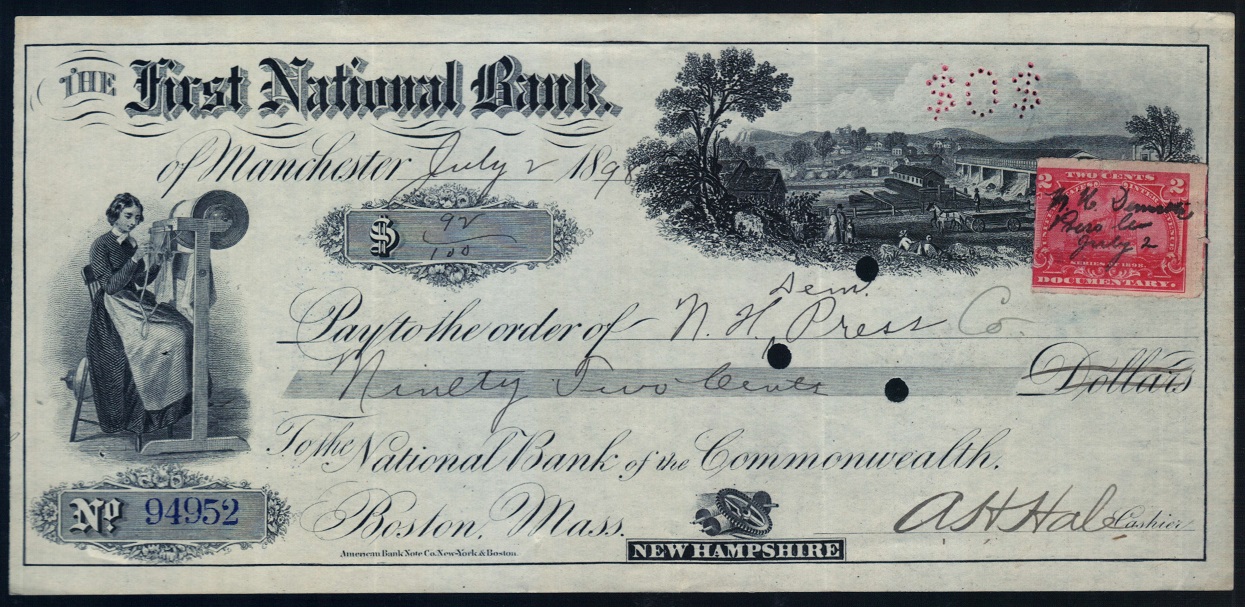 THE First National Bank.
of Manchester July 2 1898
$0$
$ 92/100
2 TWO CENTS 2
N. H. Democratic
Press Co
July 2
SERIES OF 1898
DOCUMENTARY.
Pay to the order of N. H. Dem. Press Co.
Ninety Two Cents Dollars
To the National Bank of the Commonwealth.
No 94952
Boston, Mass.
A H Hale Cashier
American Bank Note Co. New-York & Boston.
NEW HAMPSHIRE